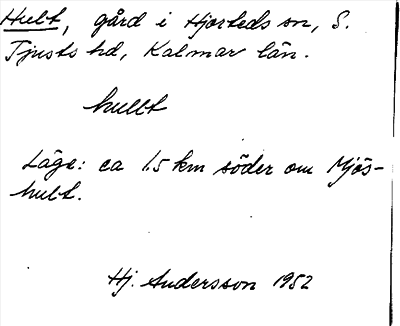 Hult, gård i Hjorteds sn, S.
Tjusts hd, Kalmar län.
hullt
Läge: ca 1.5 km söder om Mjös-
hult.
Hj. Andersson 1952